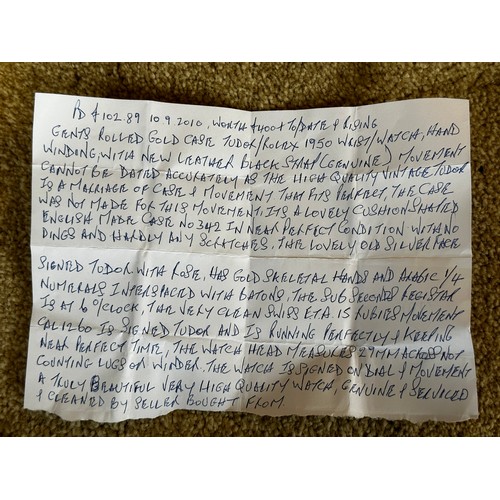 PD £102.89 10 9 2010, WORTH £400+ TO/DATE & RISING
GENTS ROLLED GOLD CASE TUDOR/ROLEX 1950 WRIST/WATCH, HAND
WINDING, WITH NEW LEATHER BLACK STRAP (GENUINE) MOVEMENT
CANNOT BE DATED ACCURATELY AS THE HIGH QUALITY VINTAGE TUDOR
IS A MARRIAGE OF CASE & MOVEMENT THAT FITS PERFECT, THE CASE
WAS NOT MADE FOR THIS MOVEMENT. IT IS A LOVELY CUSHION SHAPED
ENGLISH MADE CASE NO 342 IN NEAR PERFECT CONDITION WITH NO
DINGS AND HARDLY ANY SCRATCHES. THE LOVELY OLD SILVER FACE
SIGNED TUDOR WITH ROSE, HAS GOLD SKELETAL HANDS AND ARABIC 1/4
NUMERALS INTERSPACED WITH BATONS, THE SUB SECONDS REGISTAR
IS AT 6 O/CLOCK, THE VERY CLEAN SWISS ETA. 15 RUBIES MOVEMENT
CAL 1260 IS SIGNED TUDOR AND IS RUNNING PERFECTLY & KEEPING
NEAR PERFECT TIME, THE WATCH HEAD MEASURES 29MM ACROSS NOT
COUNTING LUGS OR WINDER. THE WATCH IS SIGNED ON DIAL & MOVEMENT
A TRULY BEAUTIFUL VERY HIGH QUALITY WATCH, GENUINE & SERVICED
& CLEANED BY SELLER BOUGHT FROM.